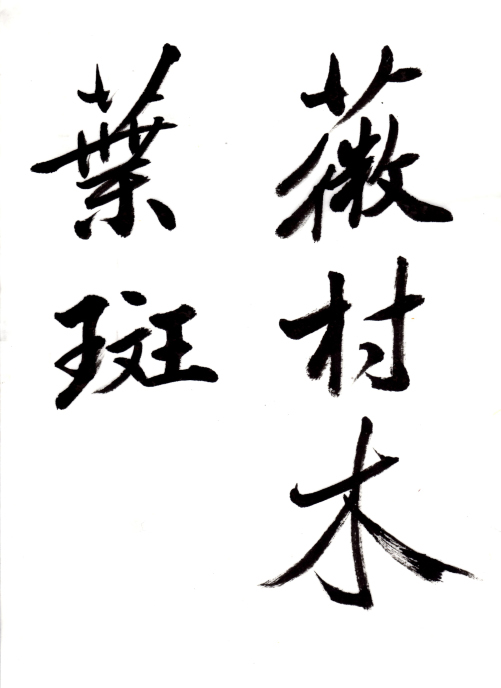 薇村木
葉斑